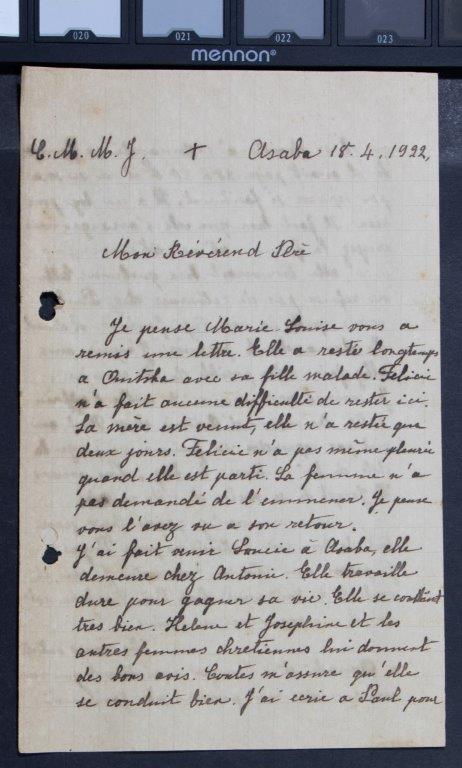 020 021 022 023
mennon®
C. M. M. J. + Asaba 18. 4. 1922,
Mon Révérend Père
Je pense Marie Louise vous a
remis une lettre. Elle a resté longtemps
a Onitsha avec sa fille malade. Felicie
n'a fait aucune difficulté de rester ici.
Sa mere est venut, elle n'a restie que
deux jours. Felicie n'a pas même pleurée
quand elle est parti. La femme n'a
pas demandé de l'emmener. Je pense
vous l'avez vu a son retour.
J'ai fait venir Loucie à Asaba, elle
demeure chez Antonie. Elle travaille
dure pour gagner sa vie. Elle se conduit
tres bien. Helene et Josephine et les
autres femmes chretiennes lui donnent
des bons avis. Toutes m'assure qu'elle
se conduit bien. J'ai ecrie a Paul pour